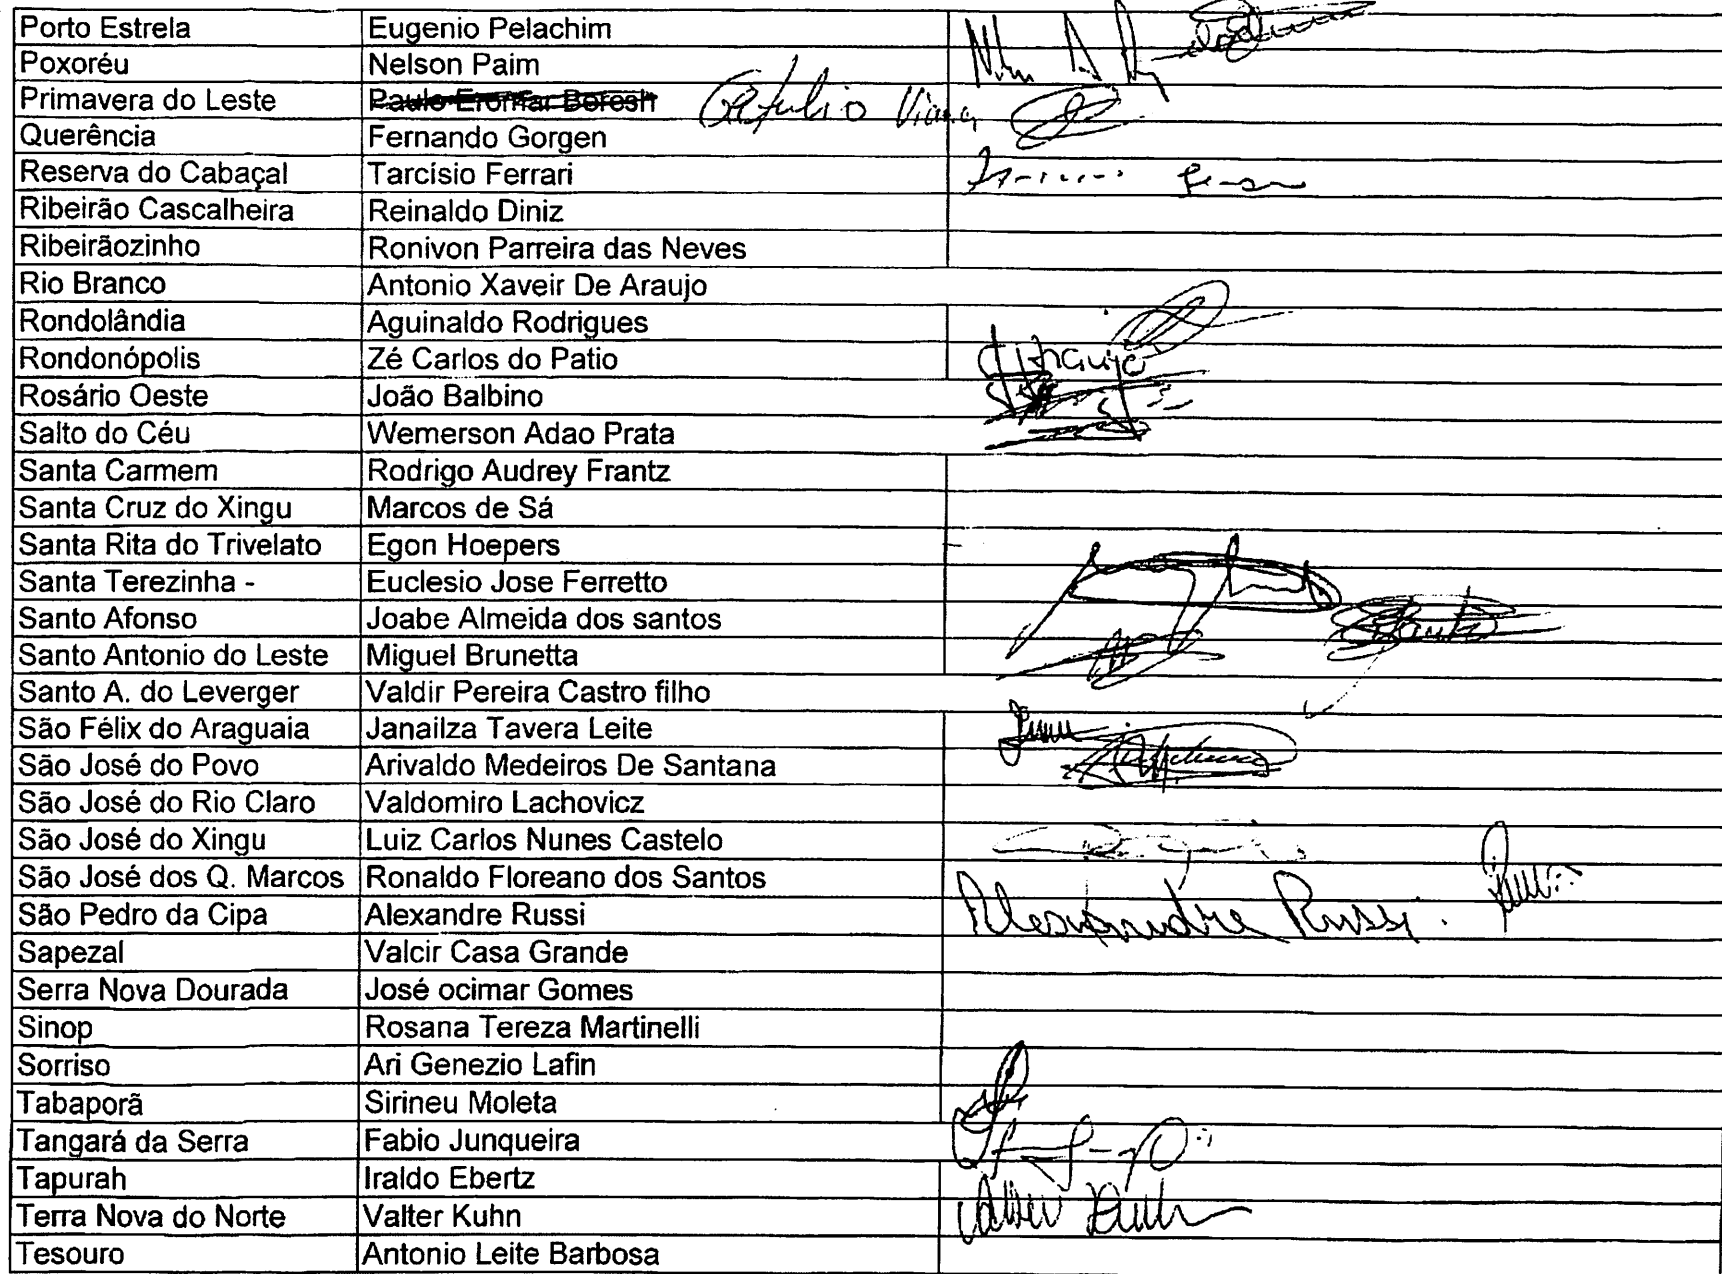 Porto Estrela Eugenio Pelachim
Poxoréu Nelson Paim
Primavera do Leste Paulo Eromar Bofesh Getulio Viana
Querência Fernando Gorgen
Reserva do Cabaçal Tarcísio Ferrari
Ribeirão Cascalheira Reinaldo Diniz
Ribeirãozinho Ronivon Parreira das Neves
Rio Branco Antonio Xaveir De Araujo
Rondolândia Aguinaldo Rodrigues
Rondonópolis Zé Carlos do Patio
Rosário Oeste João Balbino
Salto do Céu Wemerson Adao Prata
Santa Carmem Rodrigo Audrey Frantz
Santa Cruz do Xingu Marcos de Sá
Santa Rita do Trivelato Egon Hoepers
Santa Terezinha - Euclesio Jose Ferretto
Santo Afonso Joabe Almeida dos santos
Santo Antonio do Leste Miguel Brunetta
Santo A. do Leverger Valdir Pereira Castro filho
São Félix do Araguaia Janailza Tavera Leite
São José do Povo Arivaldo Medeiros De Santana
São José do Rio Claro Valdomiro Lachovicz
São José do Xingu Luiz Carlos Nunes Castelo
São José dos Q. Marcos Ronaldo Floreano dos Santos
São Pedro da Cipa Alexandre Russi Alexandre Russi.
Sapezal Valcir Casa Grande
Serra Nova Dourada José ocimar Gomes
Sinop Rosana Tereza Martinelli
Sorriso Ari Genezio Lafin
Tabaporã Sirineu Moleta
Tangará da Serra Fabio Junqueira
Tapurah Iraldo Ebertz
Terra Nova do Norte Valter Kuhn
Tesouro Antonio Leite Barbosa